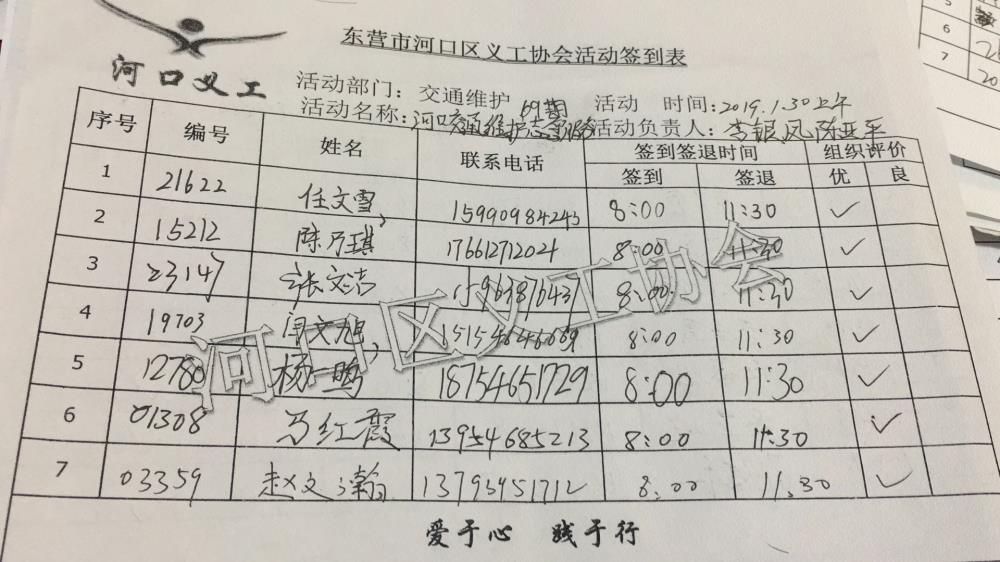 东营市河口区义工协会活动签到表
河口义工
活动部门：交通维护 69期 活动 时间：2019.1.30上午
活动名称：河口交通维护志愿服务 活动负责人：李银凤 陈亚平
序号 编号 姓名 联系电话 签到签退时间 组织评价
签到 签退 优 良
1 21622 任文雪 15990984243 8:00 11:30 ✓
2 15212 陈乃琪 17661271202 8:00 11:30 ✓
3 23147 张文洁 15963876437 8:00 11:30 ✓
4 19703 闫文旭 15154646669 8:00 11:30 ✓
5 12780 杨一鸣 18754651729 8:00 11:30 ✓
6 01308 马红霞 13954685213 8:00 11:30 ✓
7 03359 赵文瀚 13793951712 8:00 11:30 ✓
河口区义工协会
爱于心 践于行
5
6
7